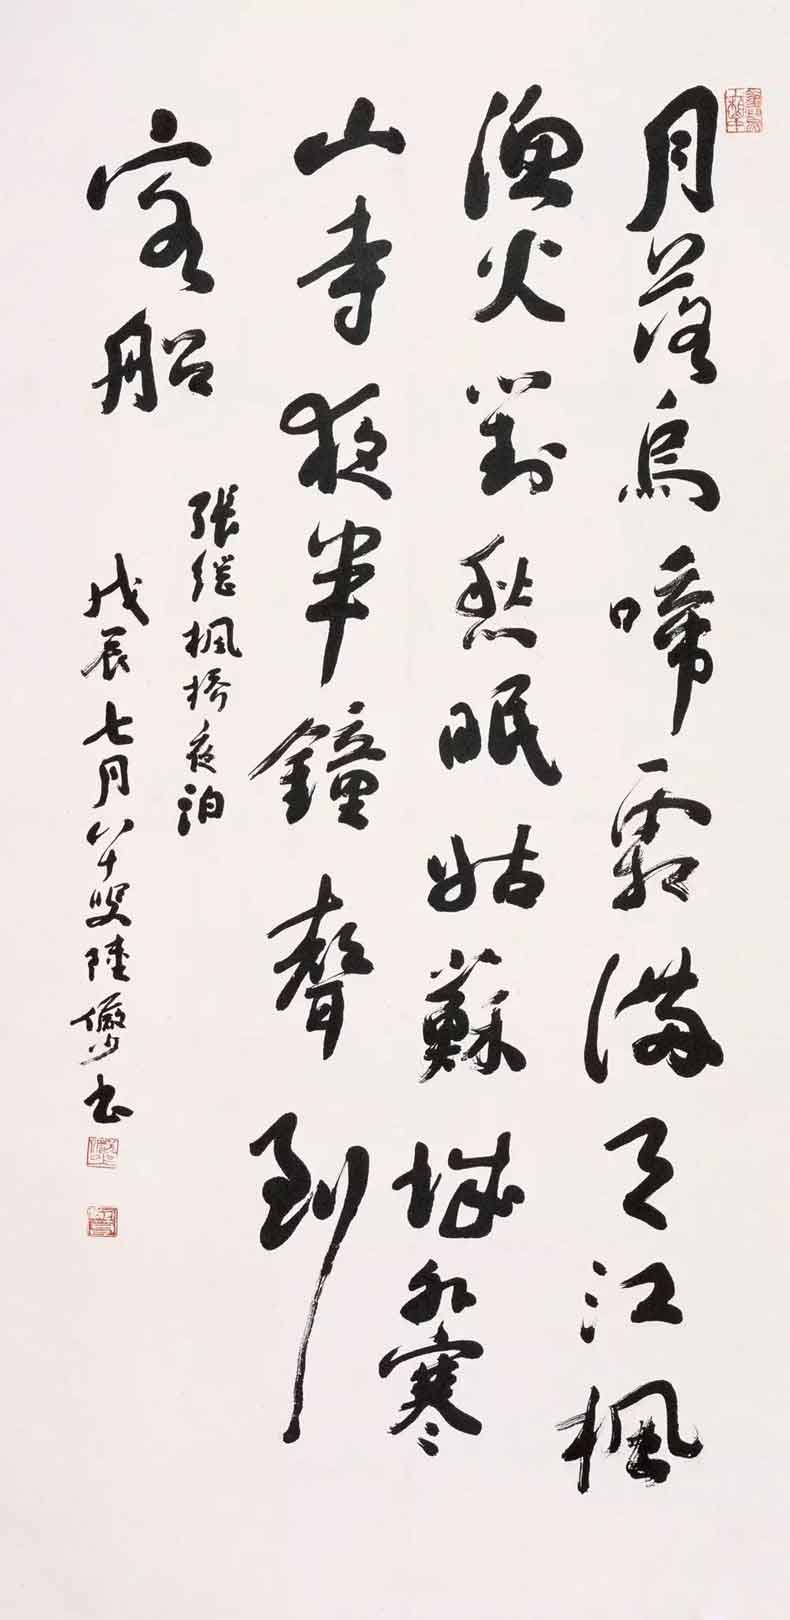 月落烏啼霜滿天江楓
漁火對愁眠姑蘇城外寒
山寺夜半鐘聲到
客船
張繼楓橋夜泊
戊辰七月八十叟陸儼少書